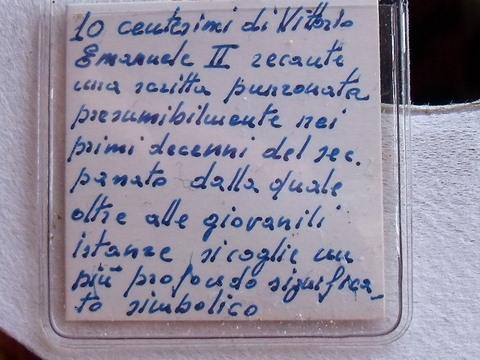 10 centesimi di Vittorio
Emanuele II recante
una scritta punzonata
presumibilmente nei
primi decenni del sec.
passato dalla quale
oltre alle giovanili
istanze si coglie un
più profondo significa_
to simbolico